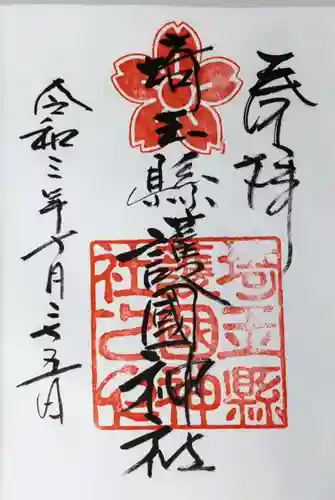 奉拝
埼玉縣護國神社
埼玉縣
護國神
社之印
令和三年十月二十五日